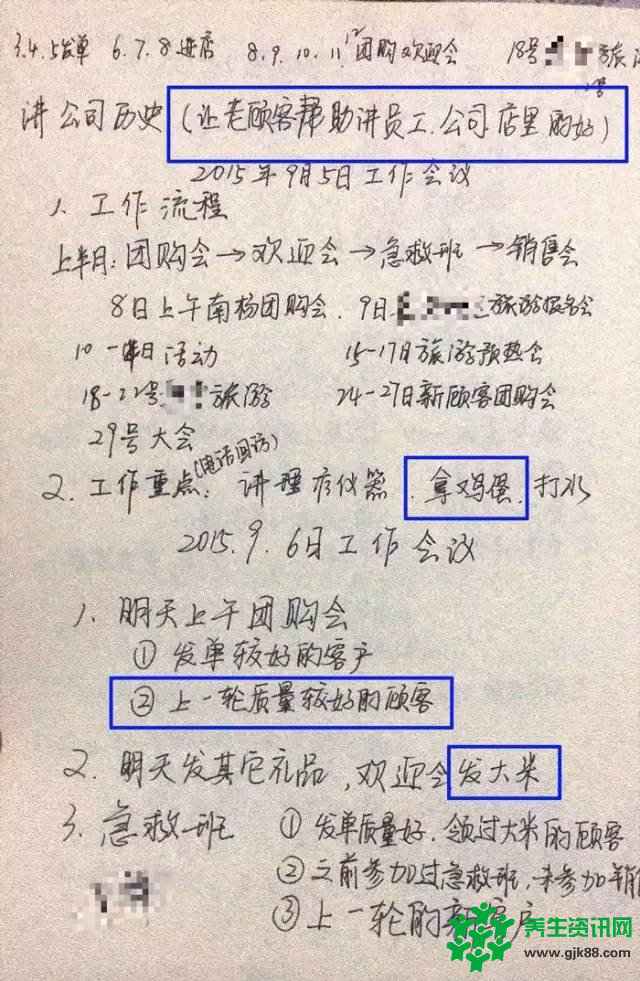 3.4.5发单 6.7.8进店 8.9.10.11.12团购欢迎会 18号 旅游
讲公司历史(让老顾客帮助讲员工.公司店里的好)
2015年9月5日工作会议
1、工作流程
上半月:团购会→欢迎会→急救班→销售会
8日上午南杨团购会、9日 旅游报名会
10- 日活动 15-17日旅游预热会
18-22号 旅游 24-27日新顾客团购会
29号大会
(电话回访)
2、工作重点:讲理疗仪器、拿鸡蛋、打水
2015.9.6日工作会议
1、明天上午团购会
① 发单较好的客户
② 上一轮质量较好的顾客
2、明天发其它礼品,欢迎会发大米
3、急救班 ① 发单质量好、领过大米的顾客
② 之前参加过急救班,未参加销
③ 上一轮的 客户
养生资讯网
www.gjk88.com